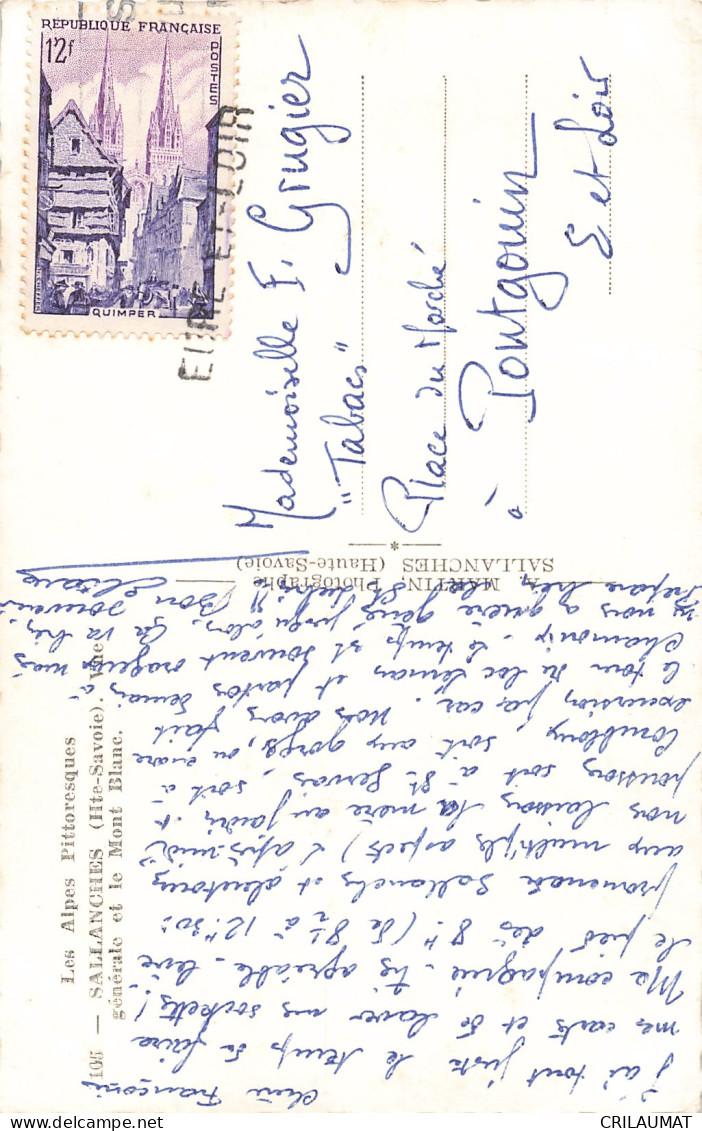 RÉPUBLIQUE FRANÇAISE
12f
POSTES
QUIMPER
EURE-ET-LOIR
Mademoiselle F. Grugier
"Tabacs"
Place du Marché
à Pontgouin
E et Loir
A. MARTIN, Photographe
SALLANCHES (Haute-Savoie)
Les Alpes Pittoresques
105 — SALLANCHES (Hte-Savoie). Vue
générale et le Mont Blanc.
Chère Françoise
J'ai tout juste le temps de faire
mes cartes et de laver mes sockettes!
Ma compagnie. Très agréable. levée
le pied dès 8h (de 8h1/2 à 12h30:
promenade Sallanches et alentours
aux multiples aspects) L'après-midi
nous laissons la mère au jardin et
poussons soit à St Gervais, soit à
Combloux, soit aux gorges, ou encore
excursion par car. Nous avons fait
le tour du lac Léman et partons demain à
Chamonix. Le temps est souvent orageux mais
ne nous a guère gêné jusqu'alors. Ça va très
bien
Bon souvenir
CRILAUMAT